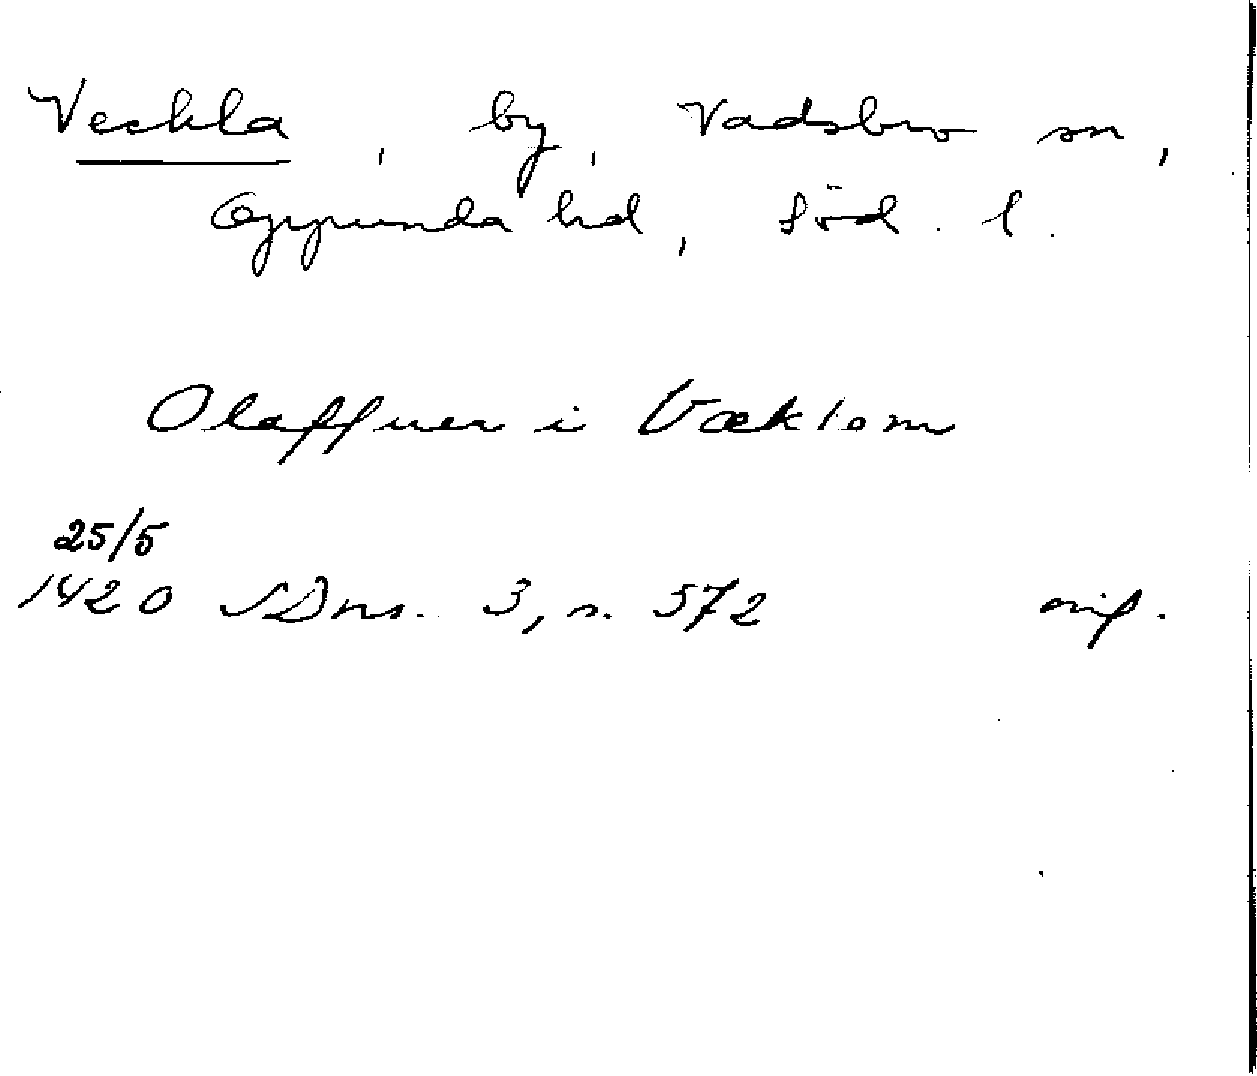 Veckla, by, Vadsbro sn,
Oppunda hd, Söd. l.
Olaffuer i Væklom
25/5
1420 SDns. 3, s. 572 orig.